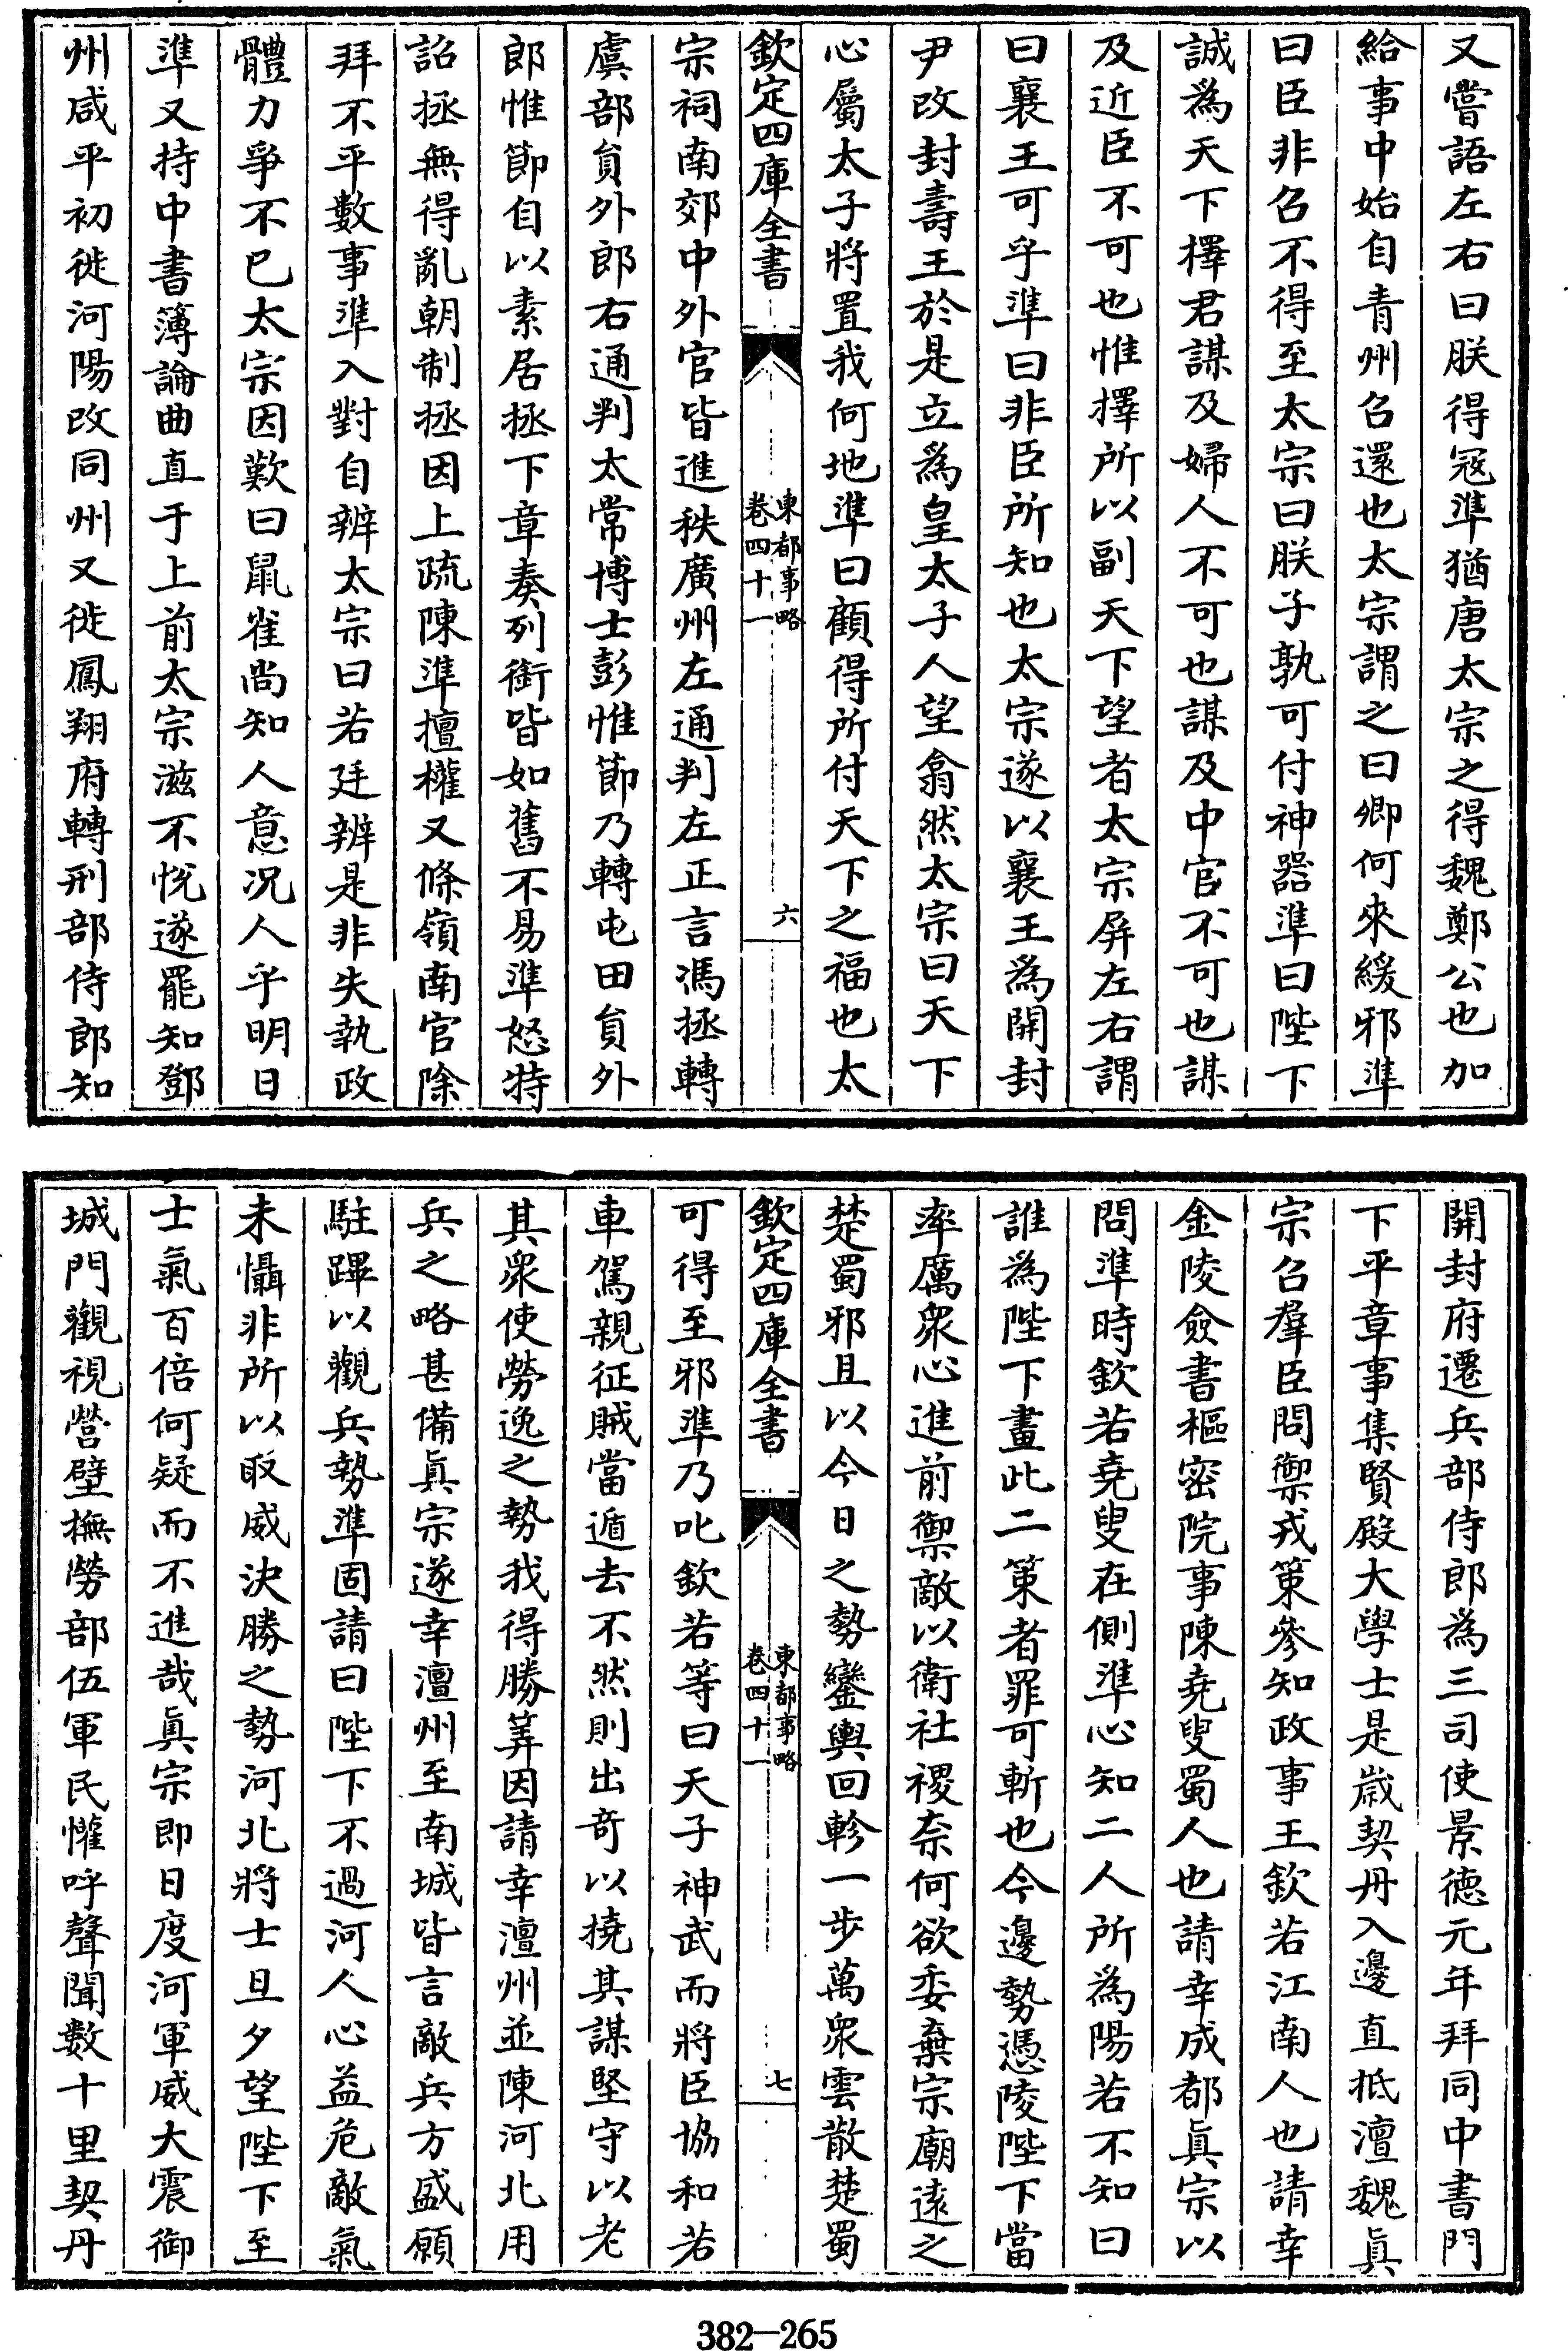 又嘗語左右曰朕得冦準猶唐太宗之得魏鄭公也加
給事中始自青州召還也太宗謂之曰卿何來緩邪準
曰臣非召不得至太宗曰朕子孰可付神器準曰陛下
誠為天下擇君謀及婦人不可也謀及中官不可也謀
及近臣不可也惟擇所以副天下望者太宗屏左右謂
曰襄王可乎準曰非臣所知也太宗遂以襄王為開封
尹改封壽王於是立為皇太子人望翕然太宗曰天下
心屬太子將置我何地準曰顧得所付天下之福也太
欽定四庫全書
東都事略
卷四十一
六
宗祠南郊中外官皆進秩廣州左通判左正言馮拯轉
虞部員外郎右通判太常博士彭惟節乃轉屯田員外
郎惟節自以素居拯下章奏列銜皆如舊不易準怒特
詔拯無得亂朝制拯因上疏陳準擅權又條嶺南官除
拜不平數事準入對自辨太宗曰若廷辨是非失執政
體力爭不已太宗因歎曰鼠雀尚知人意况人乎明日
準又持中書簿論曲直于上前太宗滋不悅遂罷知鄧
州咸平初徙河陽改同州又徙鳳翔府轉刑部侍郎知
開封府遷兵部侍郎為三司使景德元年拜同中書門
下平章事集賢殿大學士是歲契丹入邊直抵澶魏真
宗召羣臣問禦戎策參知政事王欽若江南人也請幸
金陵僉書樞密院事陳堯叟蜀人也請幸成都真宗以
問準時欽若堯叟在側準心知二人所為陽若不知曰
誰為陛下畫此二策者罪可斬也今邊勢憑陵陛下當
率厲衆心進前禦敵以衛社稷奈何欲委棄宗廟遠之
楚蜀邪且以今日之勢鑾輿回軫一步萬衆雲散楚蜀
欽定四庫全書
東都事略
卷四十一
七
可得至邪準乃叱欽若等曰天子神武而將臣協和若
車駕親征賊當遁去不然則出奇以撓其謀堅守以老
其衆使勞逸之勢我得勝筭因請幸澶州並陳河北用
兵之略甚備真宗遂幸澶州至南城皆言敵兵方盛願
駐蹕以觀兵勢準固請曰陛下不過河人心益危敵氣
未懾非所以取威決勝之勢河北將士旦夕望陛下至
士氣百倍何疑而不進哉真宗即日度河軍威大震御
城門觀視營壁撫勞部伍軍民懽呼聲聞數十里契丹
382-265